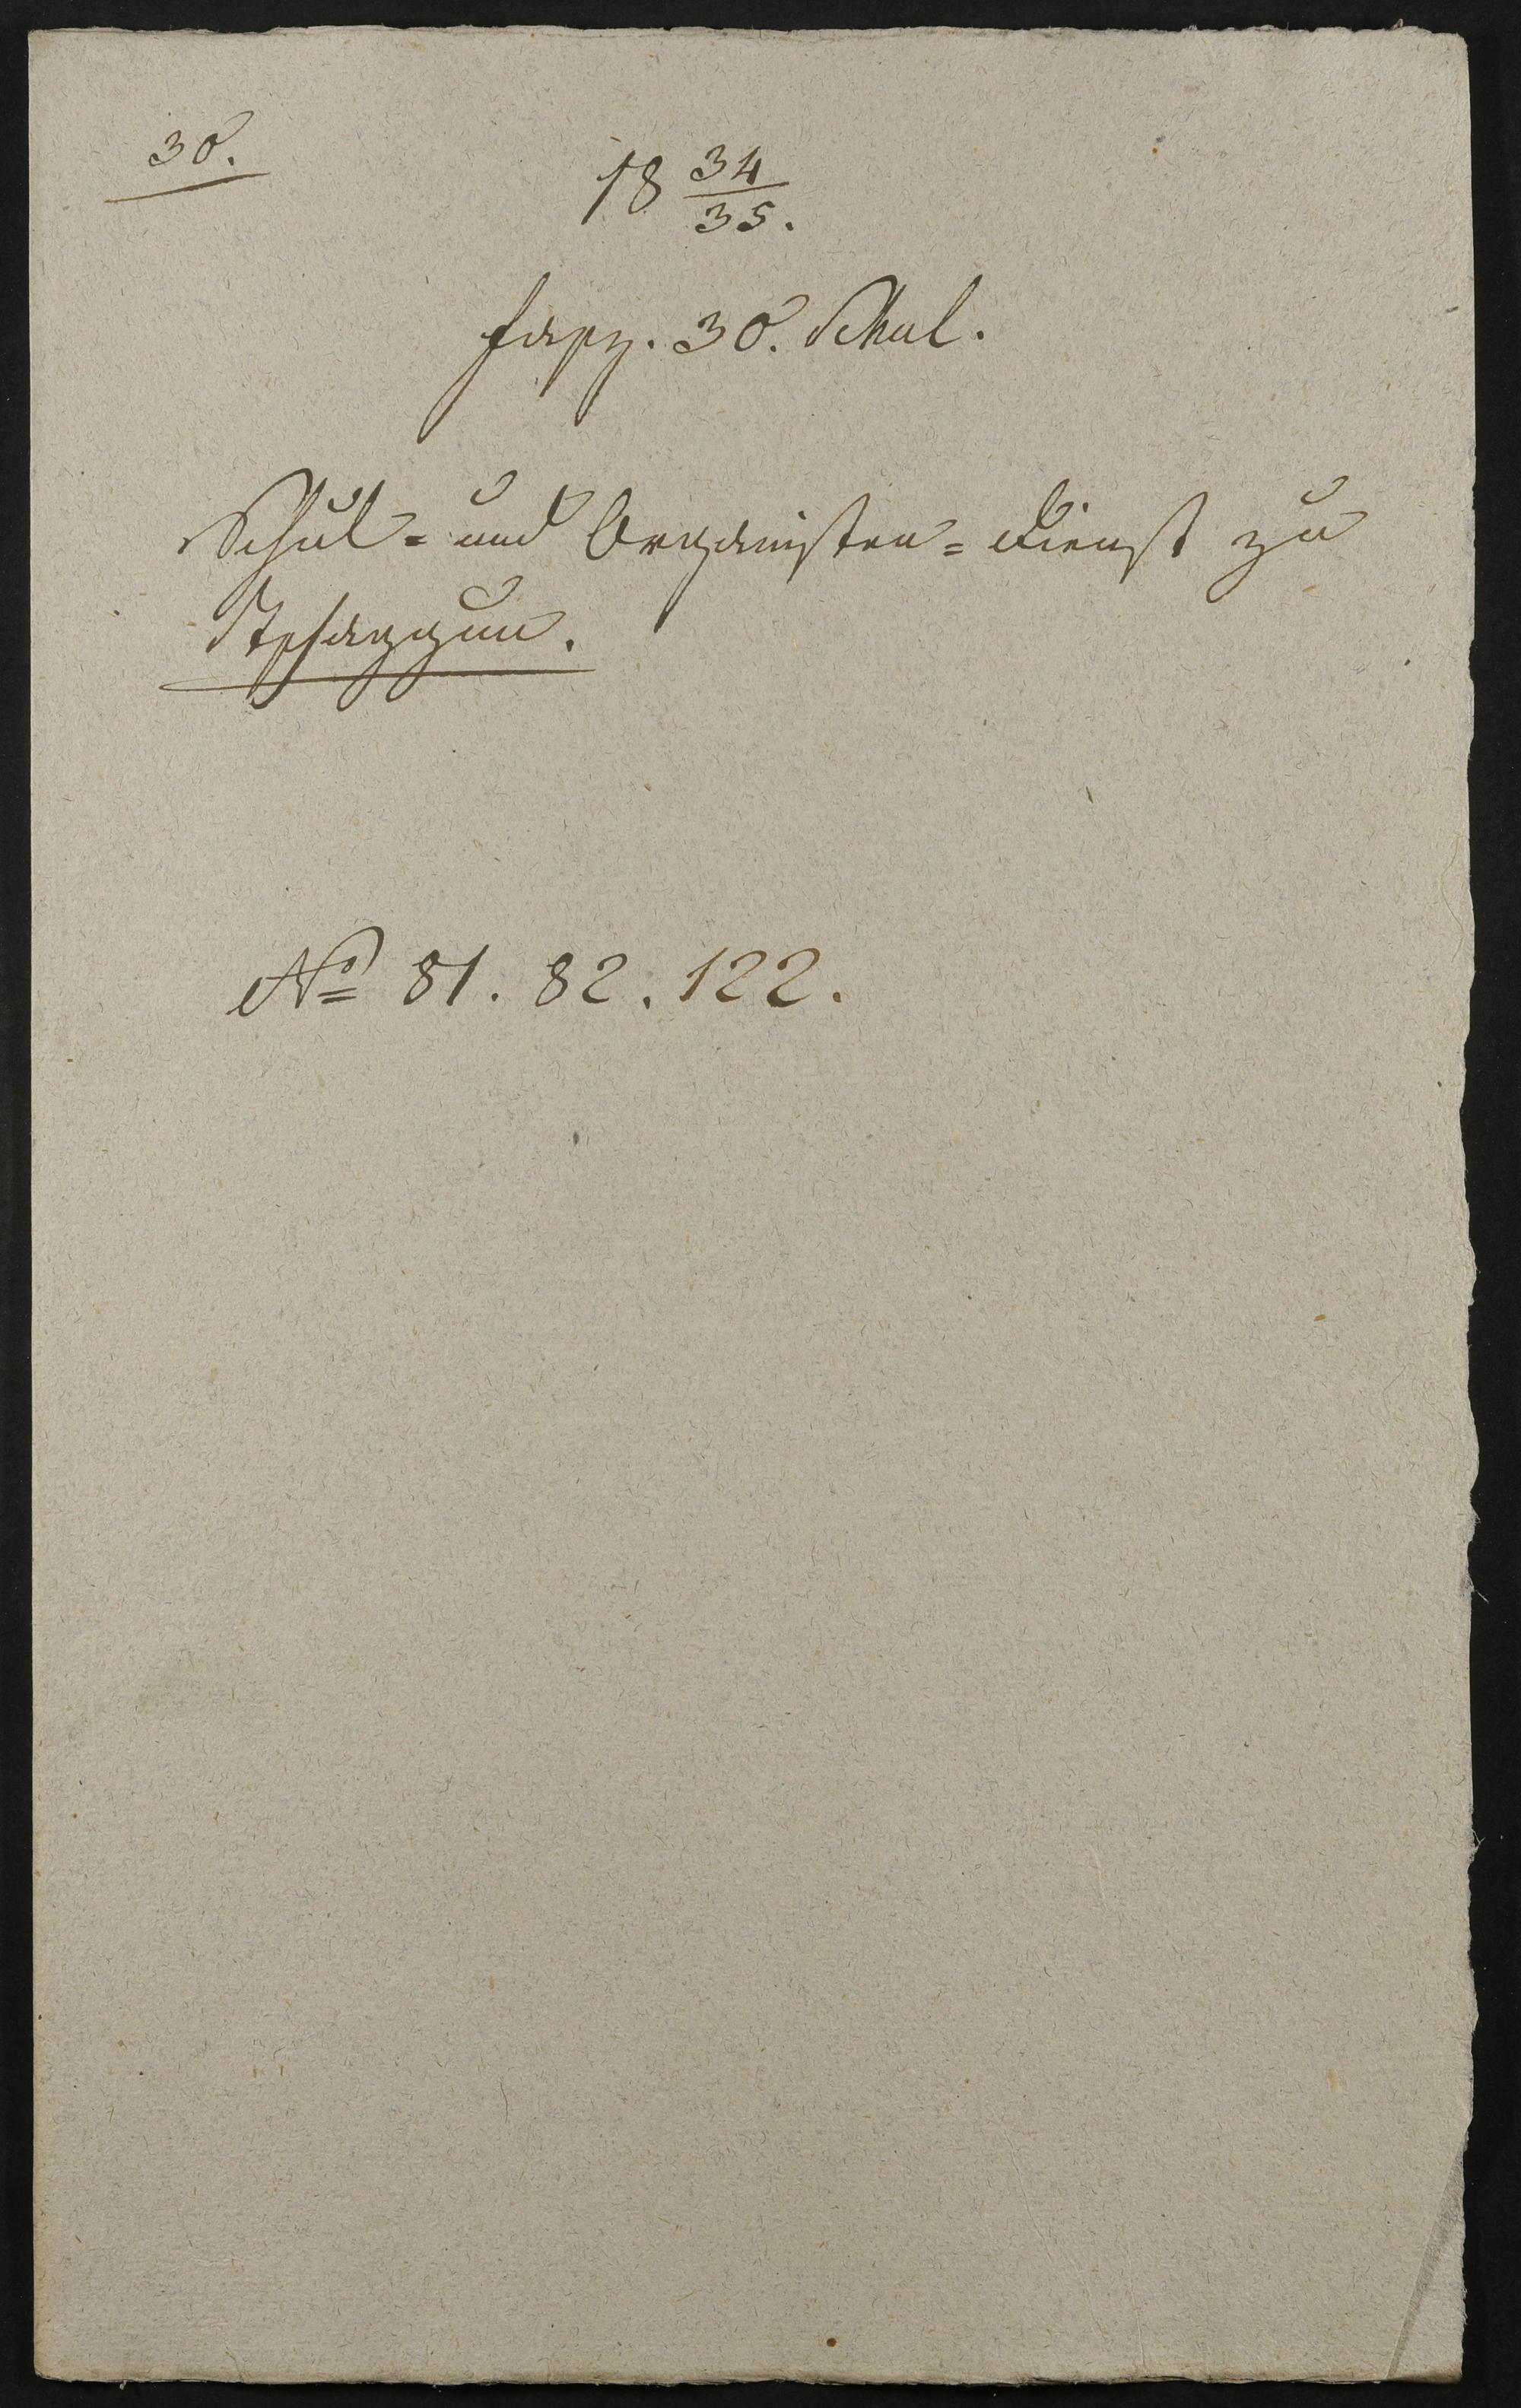 30.
18 34/35.
fasz. 30. Schul.
Schul- und Organisten-Dienst zu
Tschaggun.
No 81. 82. 122.